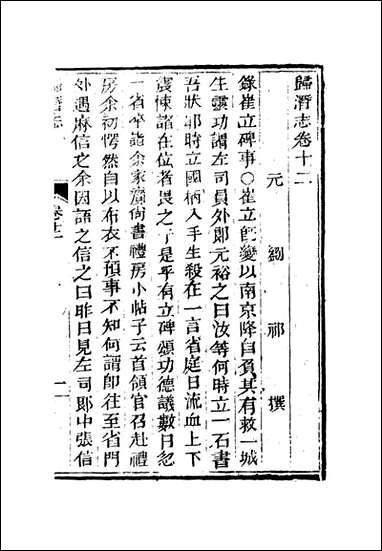 歸潛志卷十二
元 劉 祁 撰
錄崔立碑事○崔立旣變以南京降自負其有救一城
生靈功謂左司員外郎元裕之曰汝等何時立一石書
吾狀耶時立國柄入手生殺在一言省庭日流血上下
震悚諸在位者畏之于是乎有立碑頌功德議數日忽
一省卒詣余家齎尚書禮房小帖子云首領官召赴禮
房余初愕然自以布衣不預事不知何謂卽往至省門
外遇麻信之余因語之信之曰昨日見左司郎中張信
卷十二
一